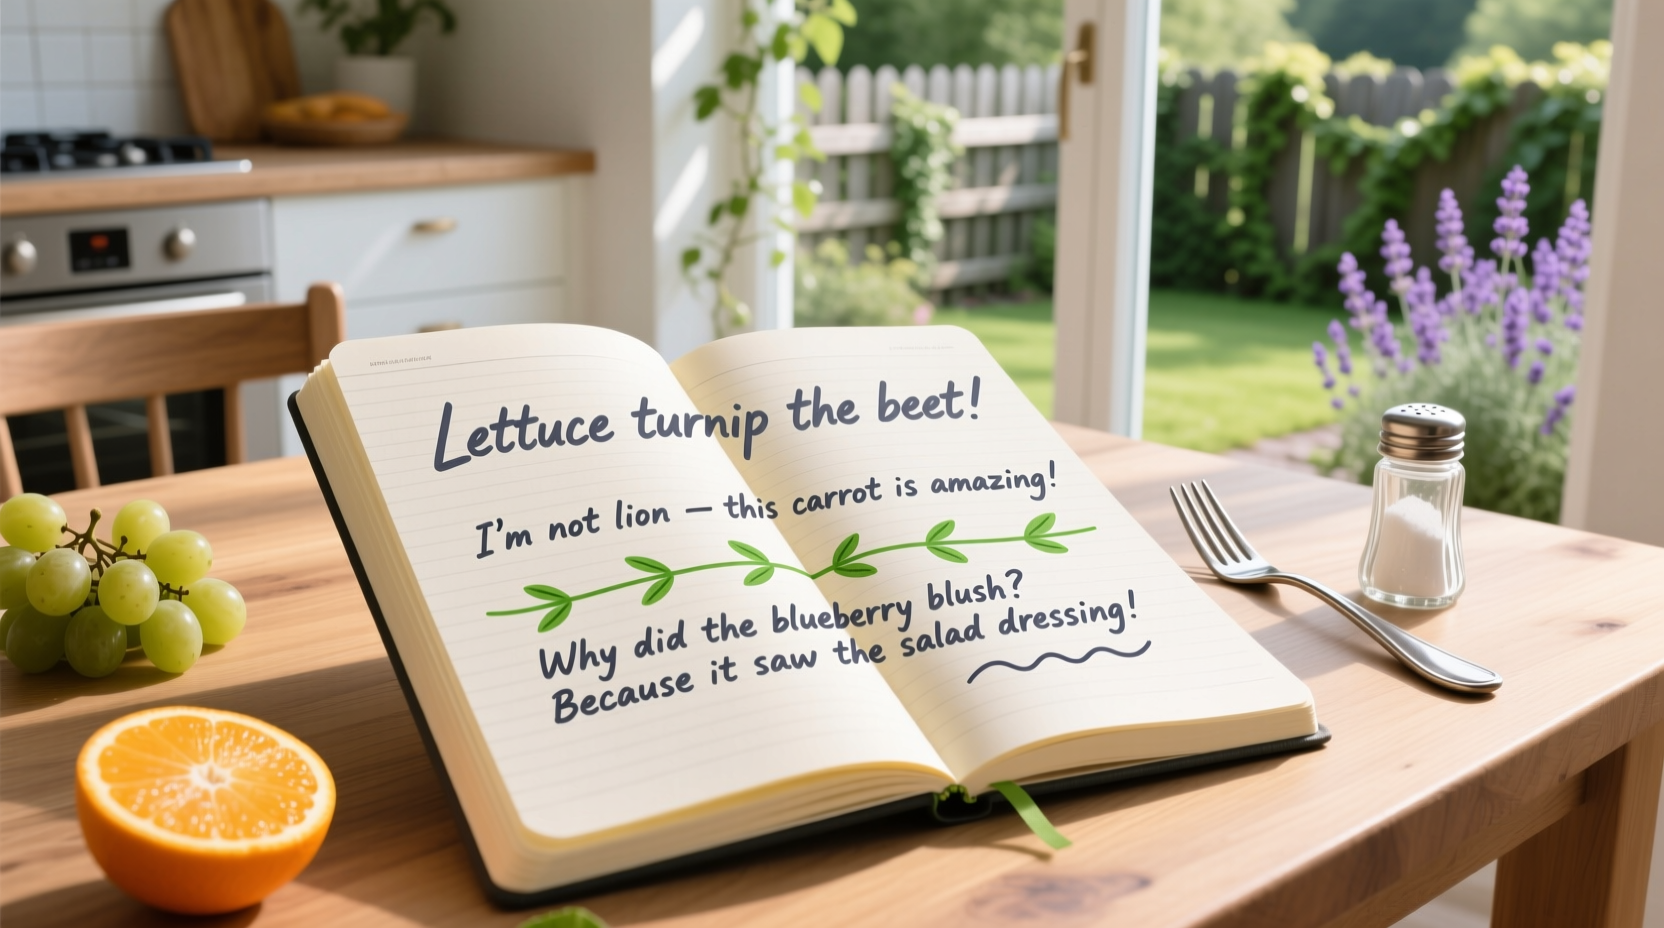 Lettuce turnip the beet!
I'm not lion – this carrot is amazing!
Why did the blueberry blush?
Because it saw the salad dressing!